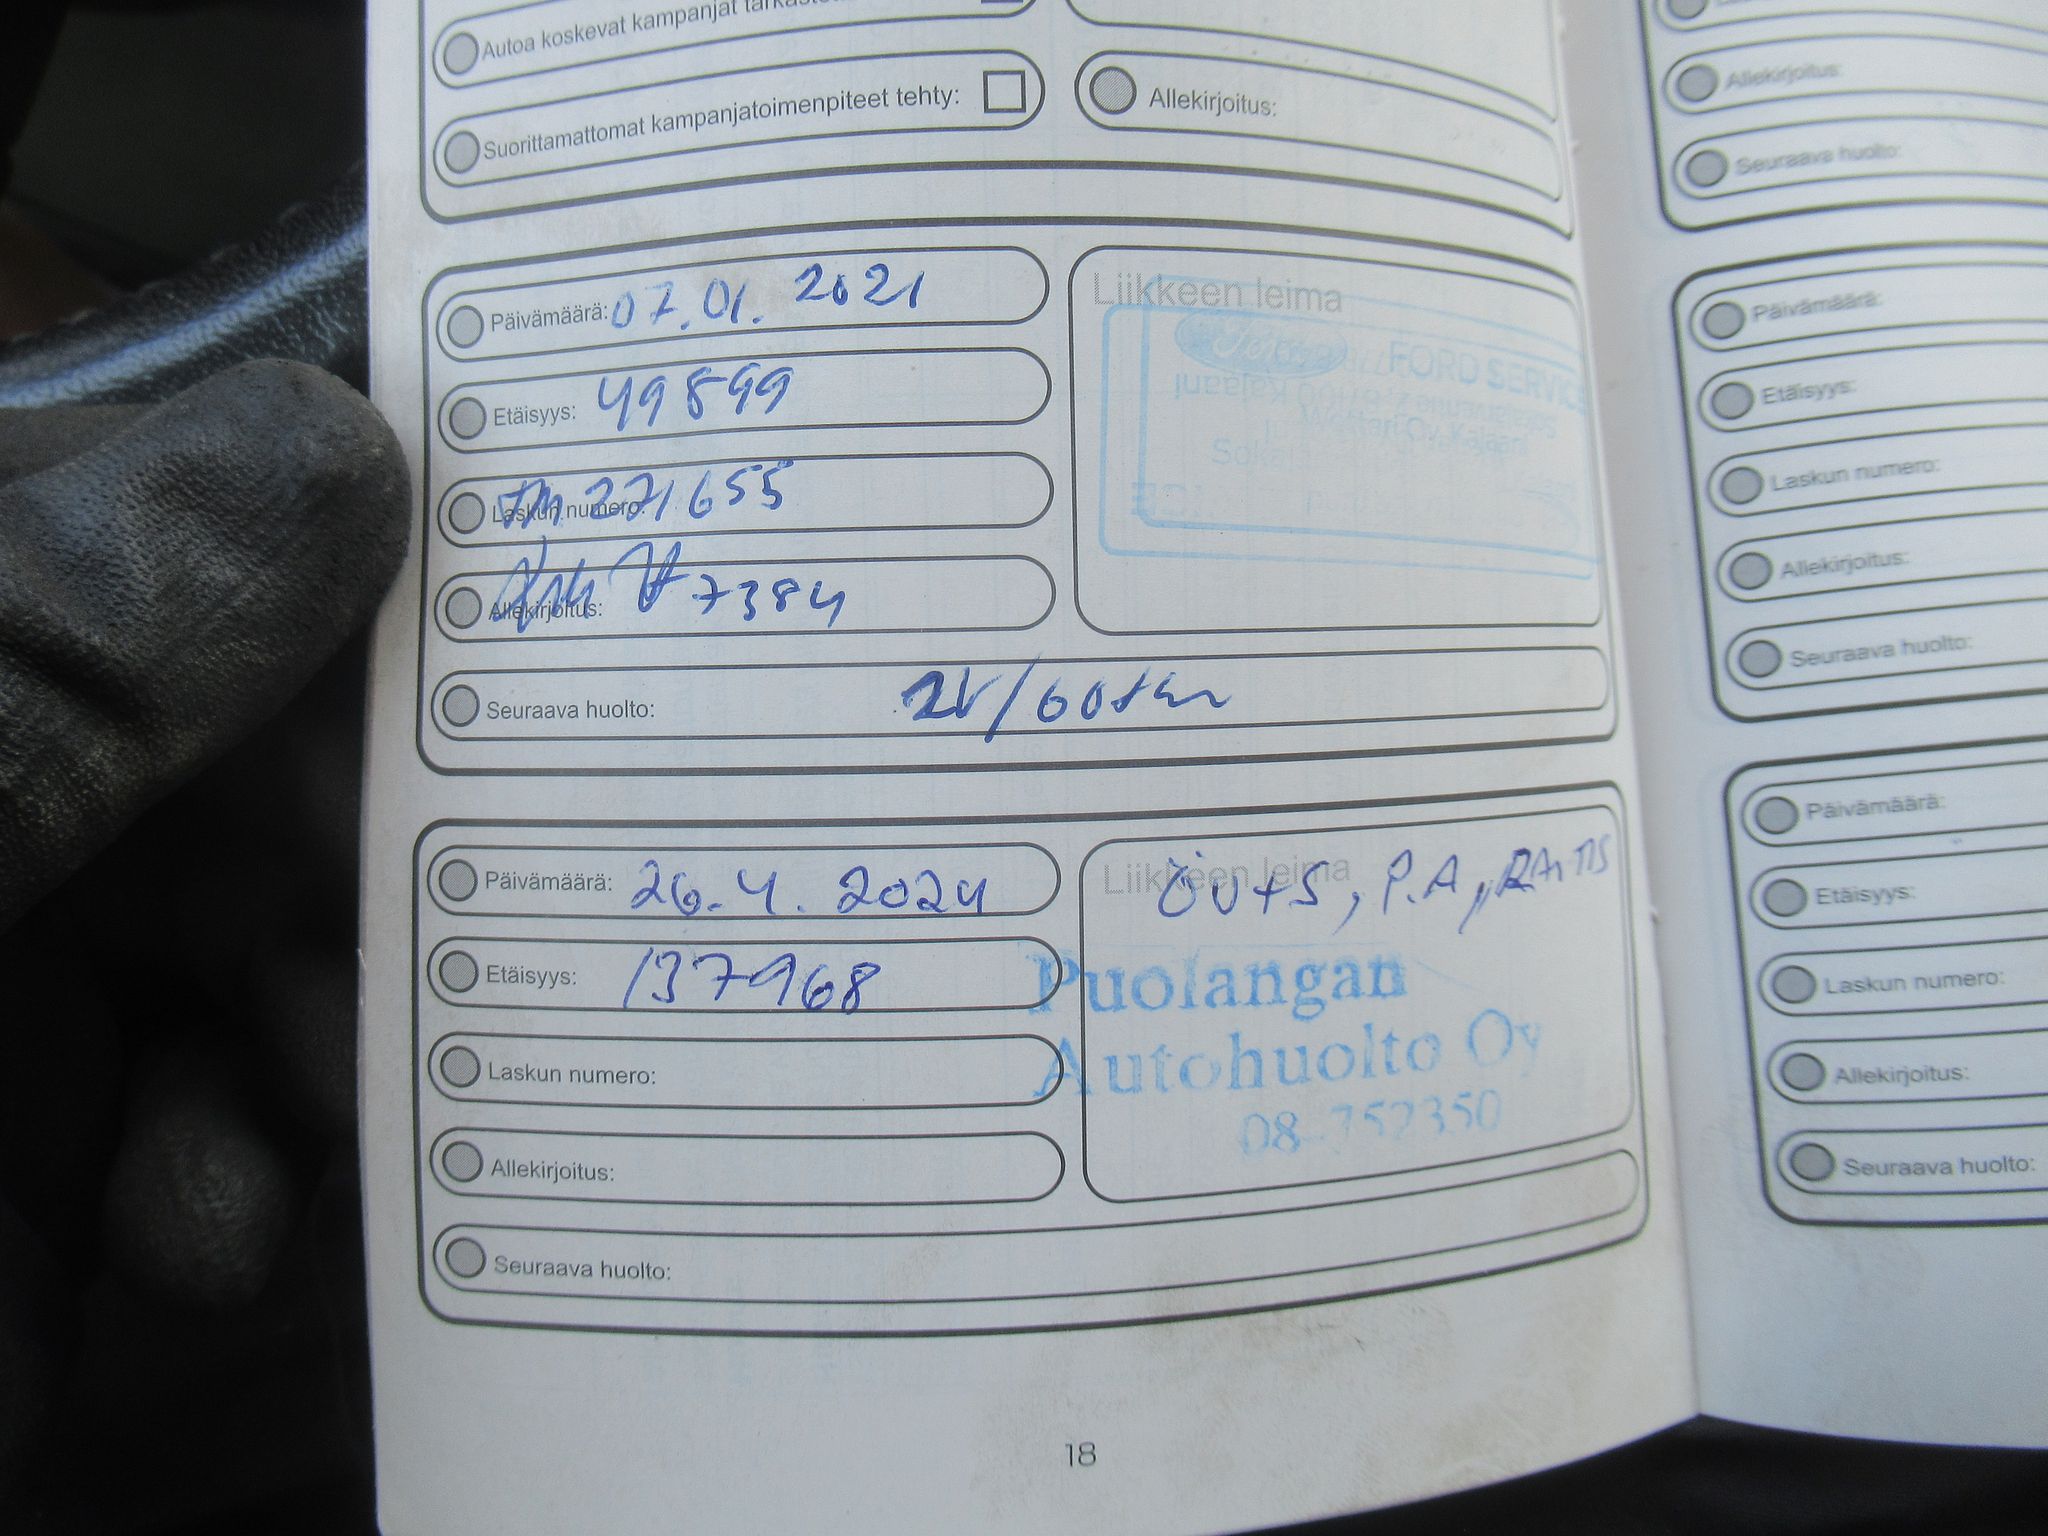 Autoa koskevat kampanjat
Suorittamattomat kampanjatoimenpiteet tehty:
Allekirjoitus:
Päivämäärä: 07.01.2021
Etäisyys: 49899
Laskun numero: 271655
Allekirjoitus: 7384
Seuraava huolto:
Liikkeen leima
Ford FORD SERVICE
Kajaani
Päivämäärä: 26.4.2024
Etäisyys: 137968
Laskun numero:
Allekirjoitus:
Seuraava huolto:
Liikkeen leima
P.A,
Puolangan
Autohuolto Oy
08-752350
18
Allekirjoitus:
Seuraava huolto:
Päivämäärä:
Etäisyys:
Laskun numero:
Allekirjoitus:
Seuraava huolto:
Päivämäärä:
Etäisyys:
Laskun numero:
Allekirjoitus:
Seuraava huolto: